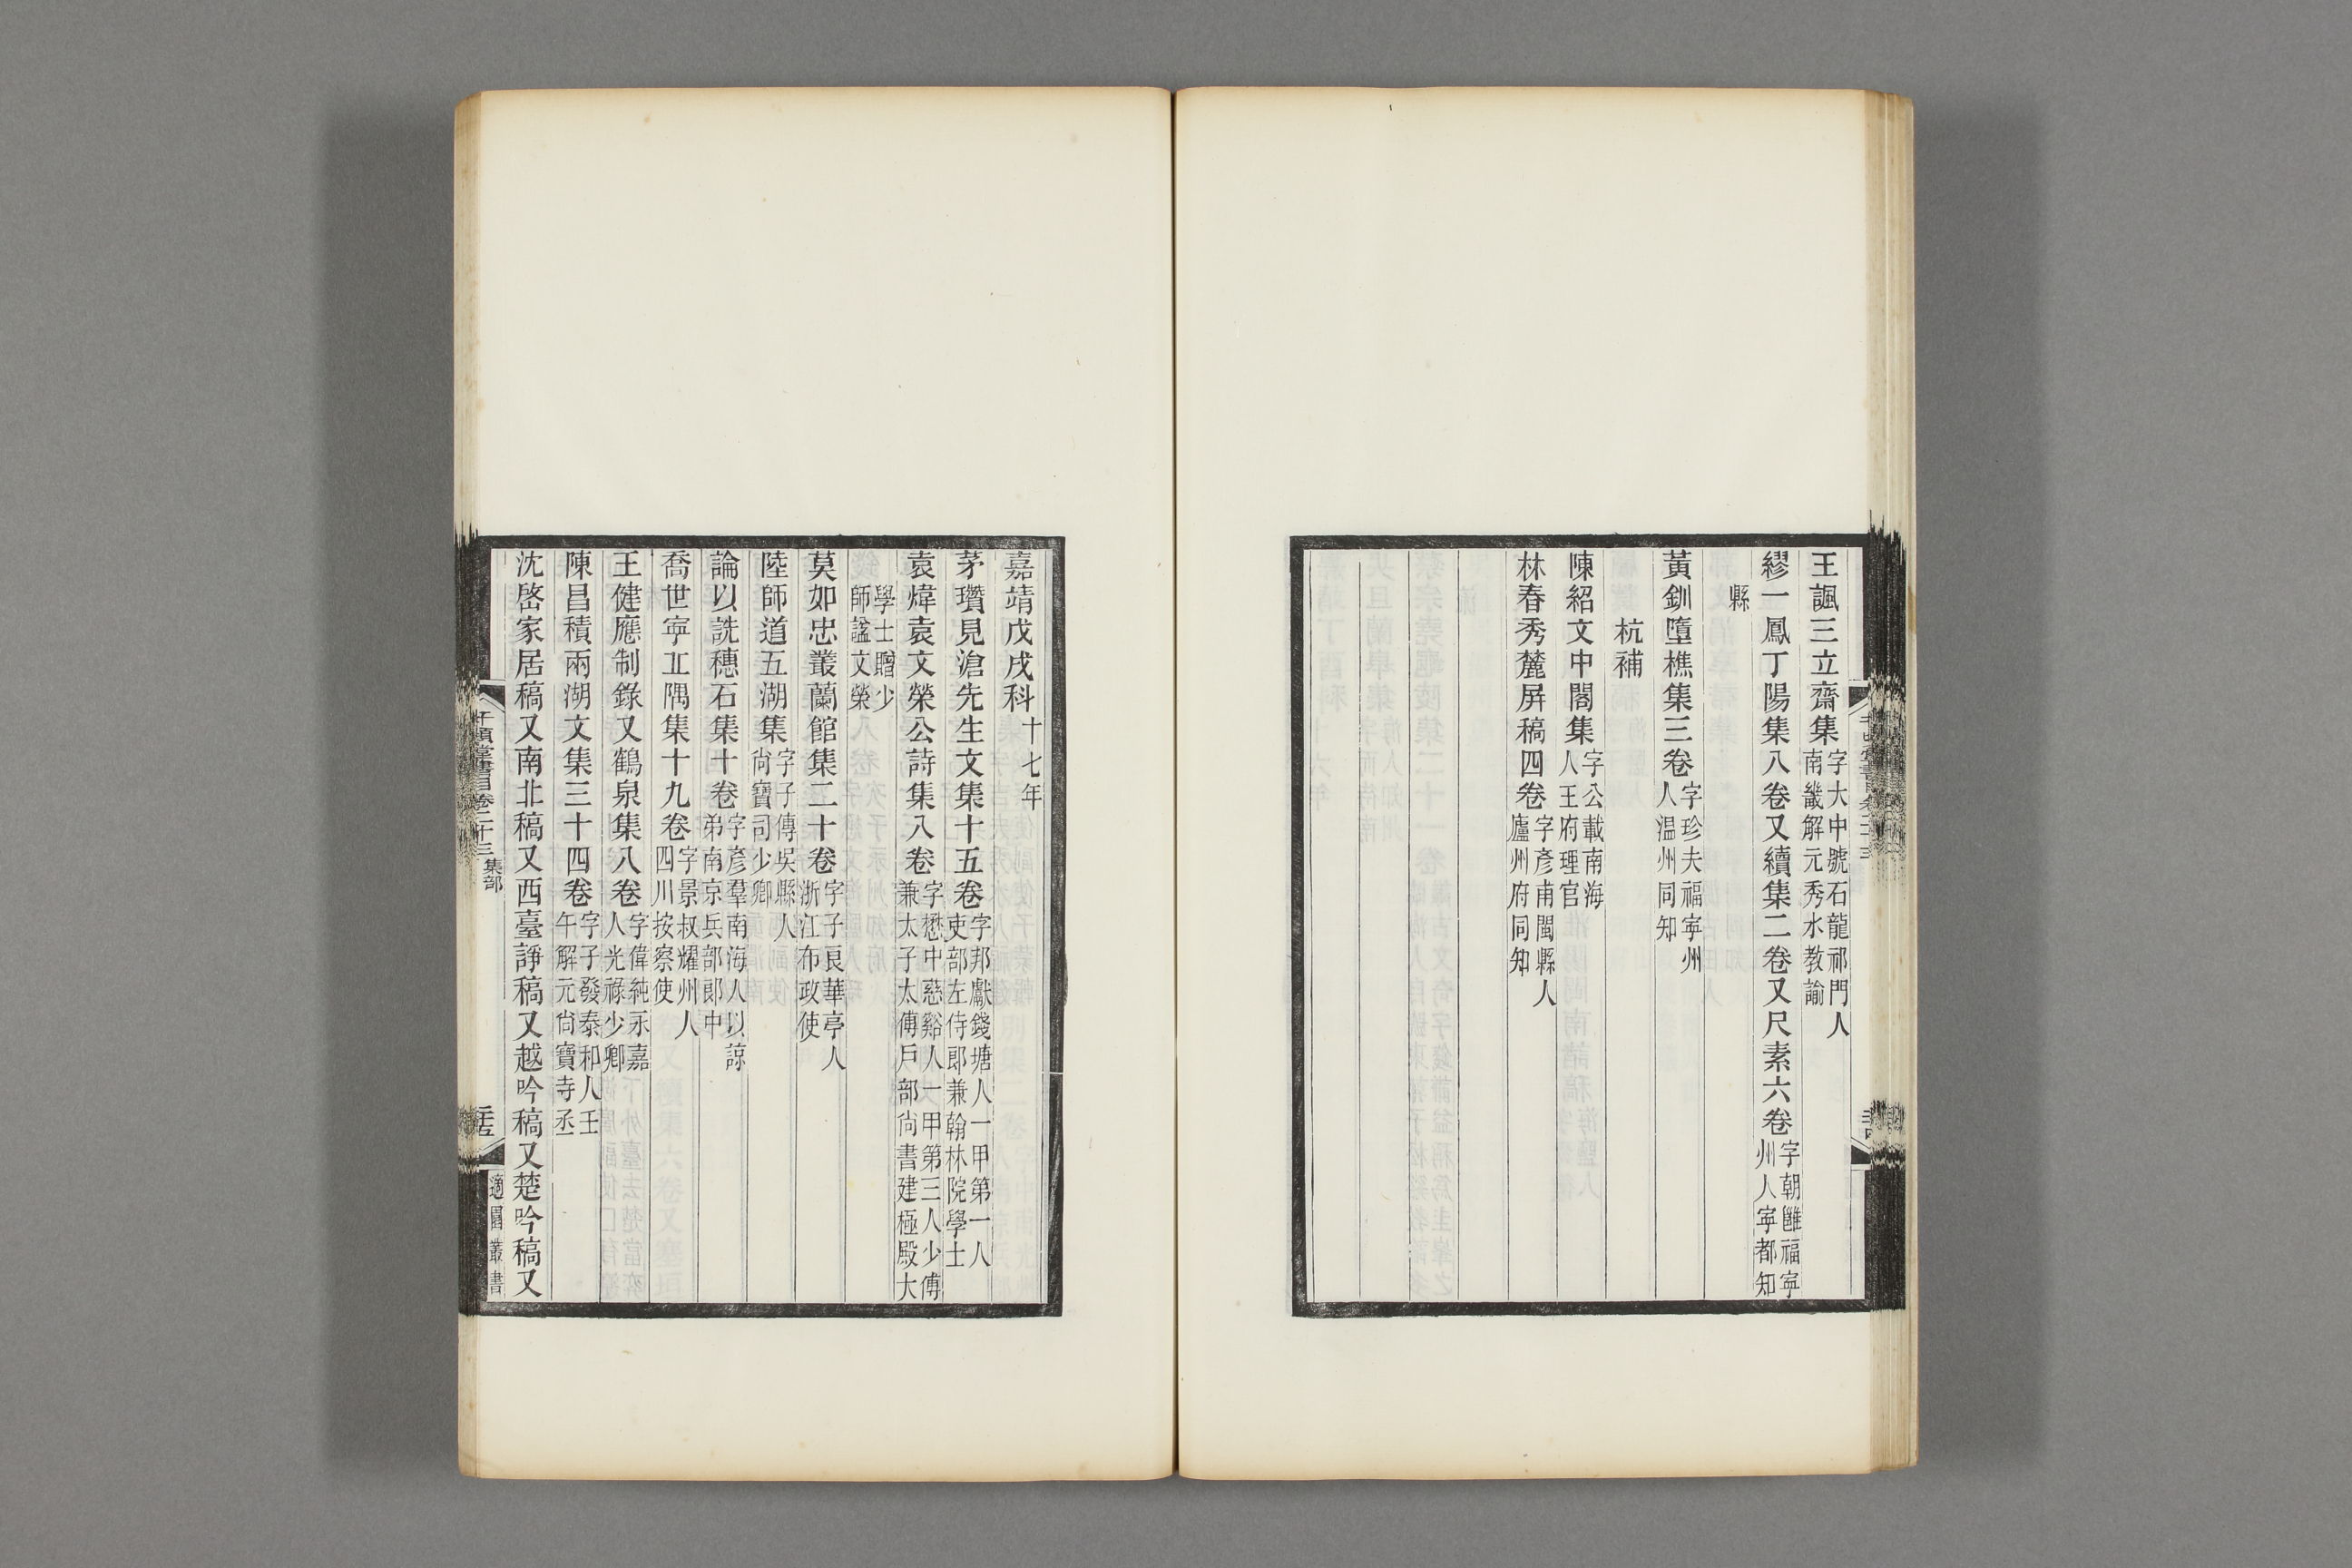 王諷三立齋集字大中號石龍祁門人
南畿解元秀水教諭
繆一鳳丁陽集八卷又續集二卷又尺素六卷字朝雝福寧
州人寧都知
縣
黃釧墮樵集三卷字珍夫福寧州
人温州同知
杭補
陳紹文中閣集字公載南海
人王府理官
林春秀麓屏稿四卷字彥甫閩縣人
廬州府同知
嘉靖戊戌科十七年
茅瓚見滄先生文集十五卷字邦獻錢塘人一甲第一人
吏部左侍郎兼翰林院學士
袁煒袁文榮公詩集八卷字懋中慈谿人一甲第三人少傅
兼太子太傅戶部尚書建極殿大
學士贈少
師諡文榮
莫如忠叢蘭館集二十卷字子良華亭人
浙江布政使
陸師道五湖集字子傳吳縣人
尚寶司少卿
論以詵穗石集十卷字彥羣南海人以諒
弟南京兵部郎中
喬世寧丘隅集十九卷字景叔耀州人
四川按察使
王健應制錄又鶴泉集八卷字偉純永嘉
人光祿少卿
陳昌積兩湖文集三十四卷字子發泰和人壬
午解元尚寶寺丞
沈啓家居稿又南北稿又西臺諍稿又越吟稿又楚吟稿又
千頃堂書目卷二十三 集部
適園叢書